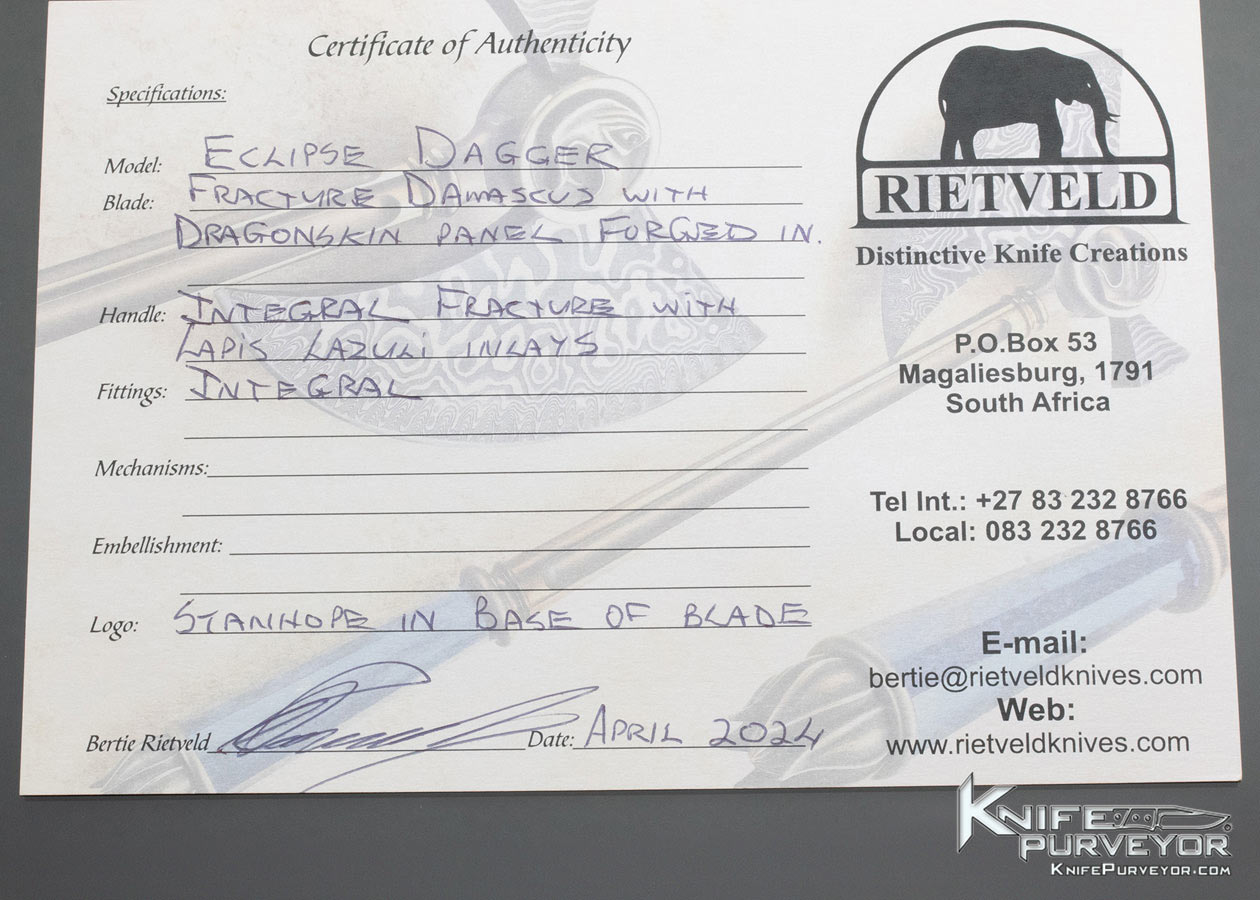 Certificate of Authenticity
Specifications:
Model: ECLIPSE DAGGER
Blade: FRACTURE DAMASCUS WITH
DRAGONSKIN PANEL FORGED IN.
Handle: INTEGRAL FRACTURE WITH
LAPIS LAZULI INLAYS
Fittings: INTEGRAL
Mechanisms:
Embellishment:
Logo: STANHOPE IN BASE OF BLADE
Bertie Rietveld Date: APRIL 2024
RIETVELD
Distinctive Knife Creations
P.O.Box 53
Magaliesburg, 1791
South Africa
Tel Int.: +27 83 232 8766
Local: 083 232 8766
E-mail:
bertie@rietveldknives.com
Web:
www.rietveldknives.com
KNIFE
PURVEYOR
KNIFEPURVEYOR.COM